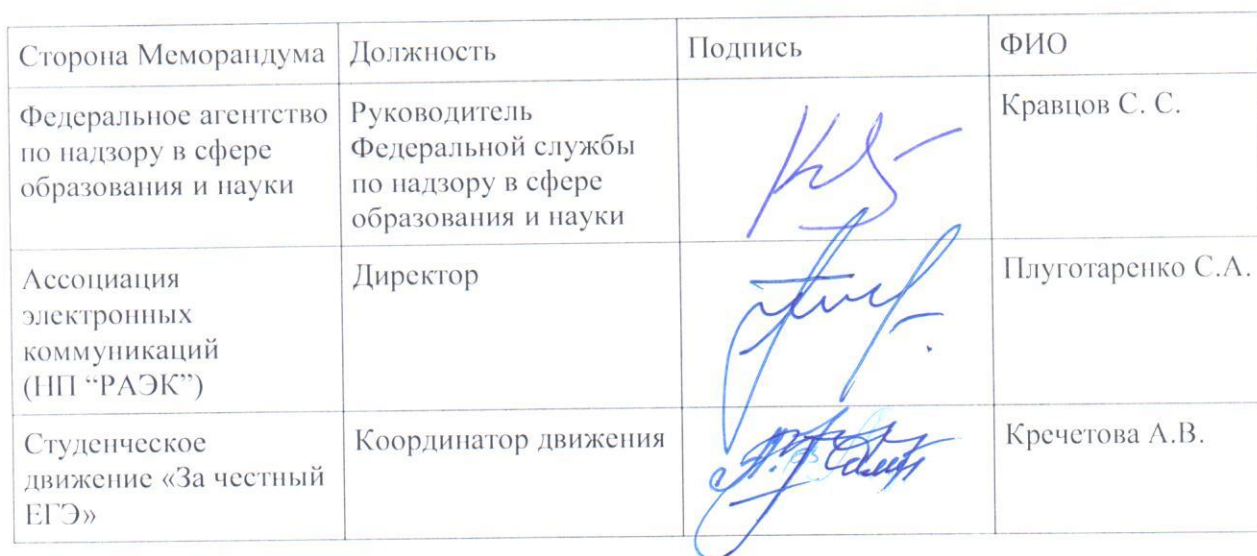 Сторона Меморандума Должность Подпись ФИО
Федеральное агентство
по надзору в сфере
образования и науки
Руководитель
Федеральной службы
по надзору в сфере
образования и науки
Кравцов С. С.
Ассоциация
электронных
коммуникаций
(НП “РАЭК”)
Директор
Плуготаренко С.А.
Студенческое
движение «За честный
ЕГЭ»
Координатор движения
Кречетова А.В.